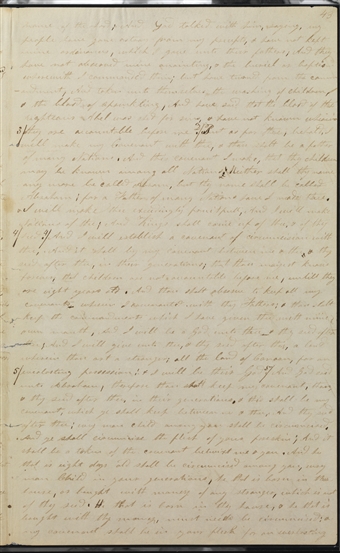 43
name of the Lord, and God talked with him, saying,
people have gone astray from my precepts, & have not kept
mine ordinances, which I gave unto their fathers, And they
have not observed mine anointing, & the burial or baptism
wherewith I commanded them; but have turned from the com-
mandment, And taken unto themselves, the washing of children,
& the blood of sprinkling, And have said that the blood of the
righteous Abel was shed for sins, & have not known wherein
they are accountable before me. But as for thee, behold I
will make my covenant with thee, & thou shalt be a father
of many Nations. And this covenant I make, that thy children
may be known among all Nations. Neither shall thy name
any more be called Abram, but thy name shall be called
Abraham; for a Father of many Nations have I made thee.
& I will make thee exceedingly fruitful, And I will make
Nations of thee, And Kings shall come of thee, & of thy
seed. And I will establish a covenant of circumcision with
thee, And it shall be my covenant between me & thee & thy
seed after thee, in their generations, that thou mayest know
forever, that children are not accountable before me, until they
are eight years old. And thou shalt observe to keep all my
covenants wherein I covenanted with thy Fathers, & thou shalt
keep the commandments which I have given thee with mine
own mouth, And I will be a God unto thee & thy seed after
thee; And I will give unto thee, & thy seed after thee, a land
wherein thou art a stranger; all the land of Canaan, for an
everlasting possession; & I will be their God. And God said
unto Abraham, therefore thou shalt keep my covenant, thou
& thy seed after thee, in their generations, & this shall be my
covenant, which ye shall keep between me & thee, And thy seed
after thee; every man child among you shall be circumcised:
And ye shall circumcise the flesh of your foreskin; And it
shall be a token of the covenant betwixt me & you. And he
that is eight days old shall be circumcised among you, every
man child in your generations, he that is born in the
house, or bought with money of any stranger, which is not
of thy seed. He that is born in thy house, & he that is
bought with thy money, must needs be circumcised; &
my covenant shall be in your flesh for an everlasting